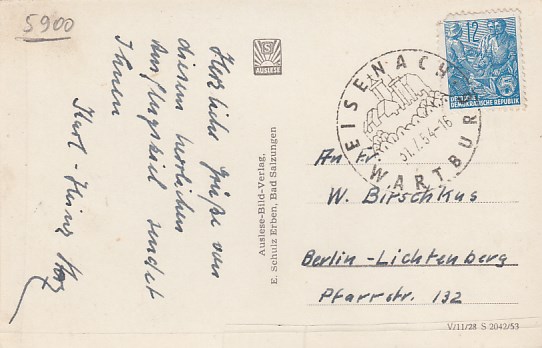 5900
Herzliche Grüße von
diesem herrlichen
Ausflugsziel sendet
Ihnen
Karl-Heinz
S
AUSLESE
Auslese-Bild-Verlag,
E. Schulz Erben, Bad Salzungen
EISENACH
WARTBURG
31.7.54-16
12
5
DEUTSCHE
DEMOKRATISCHE REPUBLIK
An Fr.
W. Birschkus
Berlin-Lichtenberg
Pfarrstr. 132
V/11/28 S 2042/53